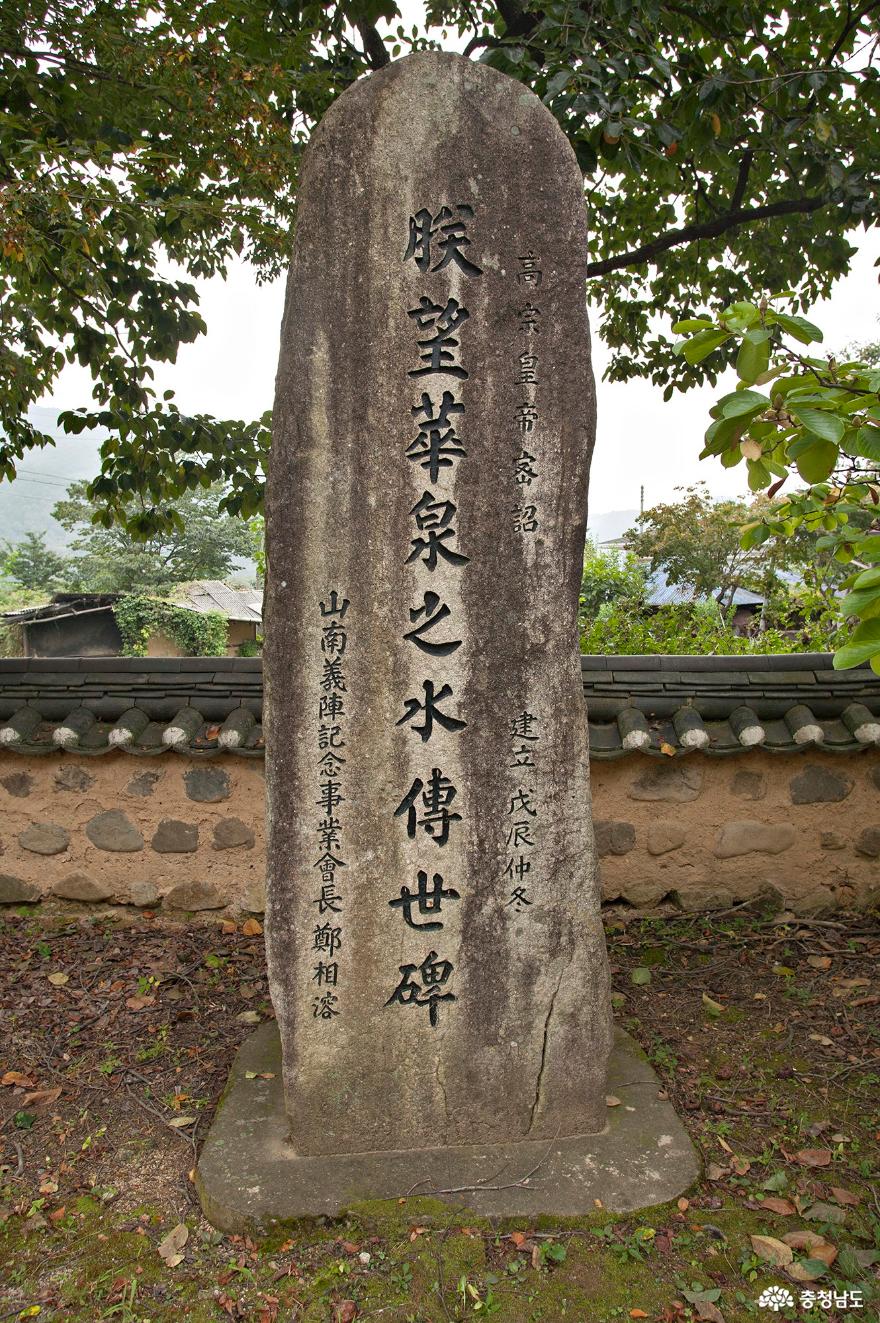 高宗皇帝密詔
建立 戊辰仲冬
朕望華泉之水傳世碑
山南義陣記念事業會長 鄭相溶
충청남도